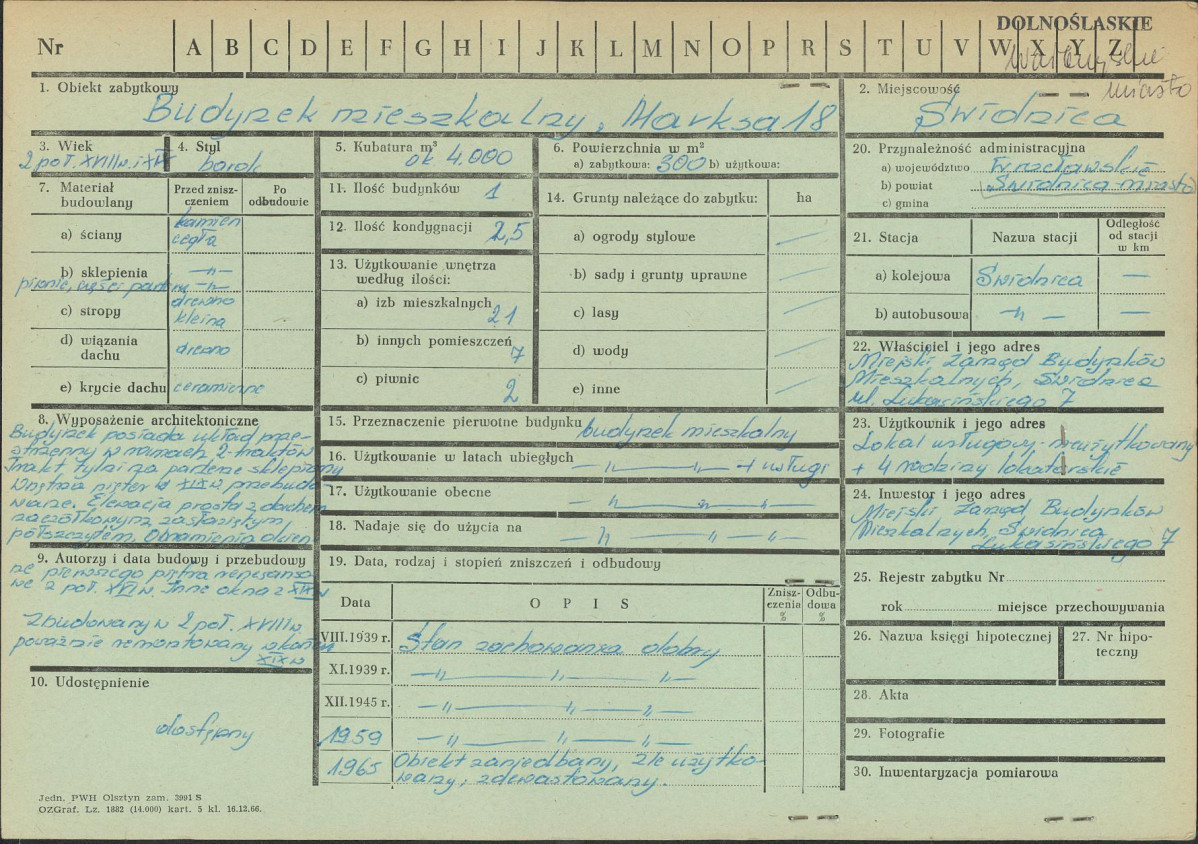 DOLNOŚLĄSKIE
Nr A B C D E F G H I J K L M N O P R S T U V W X Y Z
miasto
1. Obiekt zabytkowy
Budynek mieszkalny, Marksa 18
2. Miejscowość
Świdnica
3. Wiek
2 poł. XVIII w. i XIX
4. Styl
barok
5. Kubatura m³
ok 4.000
6. Powierzchnia w m²
a) zabytkowa: 300 b) użytkowa:
7. Materiał budowlany
Przed zniszczeniem
Po odbudowie
a) ściany
kamień
cegła
b) sklepienia
—"—
piwnic, części parteru —"—
c) stropy
drewno
kleina
d) wiązania dachu
drewno
e) krycie dachu
ceramiczne
8. Wyposażenie architektoniczne
Budynek posiada układ prze-
strzenny w ramach 2-traktów
Trakt tylni na parterze sklepiony
Wnętrza pięter w XIX w przebudo
wane. Elewacja prosta z dachem
naczółkowym zasłoniętym
półszczytem. Obramienia okien
9. Autorzy i data budowy i przebudowy
ne pierwszego piętra renesanso
we 2 poł. XVI w. Inne okna z XIX w
Zbudowany w 2 poł. XVIII w
poważnie remontowany w końcu
XIX w
10. Udostępnienie
dostępny
11. Ilość budynków
1
12. Ilość kondygnacji
2,5
13. Użytkowanie wnętrza według ilości:
a) izb mieszkalnych
21
b) innych pomieszczeń
7
c) piwnic
2
14. Grunty należące do zabytku:
ha
a) ogrody stylowe
b) sady i grunty uprawne
c) lasy
d) wody
e) inne
15. Przeznaczenie pierwotne budynku budynek mieszkalny
16. Użytkowanie w latach ubiegłych —"— —"— + usługi
17. Użytkowanie obecne —"— —"— —"—
18. Nadaje się do użycia na —"— —"— —"—
19. Data, rodzaj i stopień zniszczeń i odbudowy
Data
O P I S
Zniszczenia %
Odbudowa %
VIII.1939 r. Stan zachowania dobry
XI.1939 r. —"— —"— —"—
XII.1945 r. —"— —"— —"—
1959 —"— —"— —"—
1965 Obiekt zaniedbany, źle użytko-
wany, zdewastowany.
20. Przynależność administracyjna
a) województwo Wrocławskie
b) powiat Świdnica-miasto
c) gmina
21. Stacja
Nazwa stacji
Odległość od stacji w km
a) kolejowa Świdnica —
b) autobusowa —"— —
22. Właściciel i jego adres
Miejski Zarząd Budynków
Mieszkalnych, Świdnica
ul. Łukasińskiego 7
23. Użytkownik i jego adres
Lokal usługowy-nieużytkowany
+ 4 rodziny lokatorskie
24. Inwestor i jego adres
Miejski Zarząd Budynków
Mieszkalnych, Świdnica
Łukasińskiego 7
25. Rejestr zabytku Nr
rok miejsce przechowywania
26. Nazwa księgi hipotecznej
27. Nr hipoteczny
28. Akta
29. Fotografie
30. Inwentaryzacja pomiarowa
Jedn. PWH Olsztyn zam. 3991 S
OZGraf. Lz. 1882 (14.000) kart. 5 kl. 16.12.66.